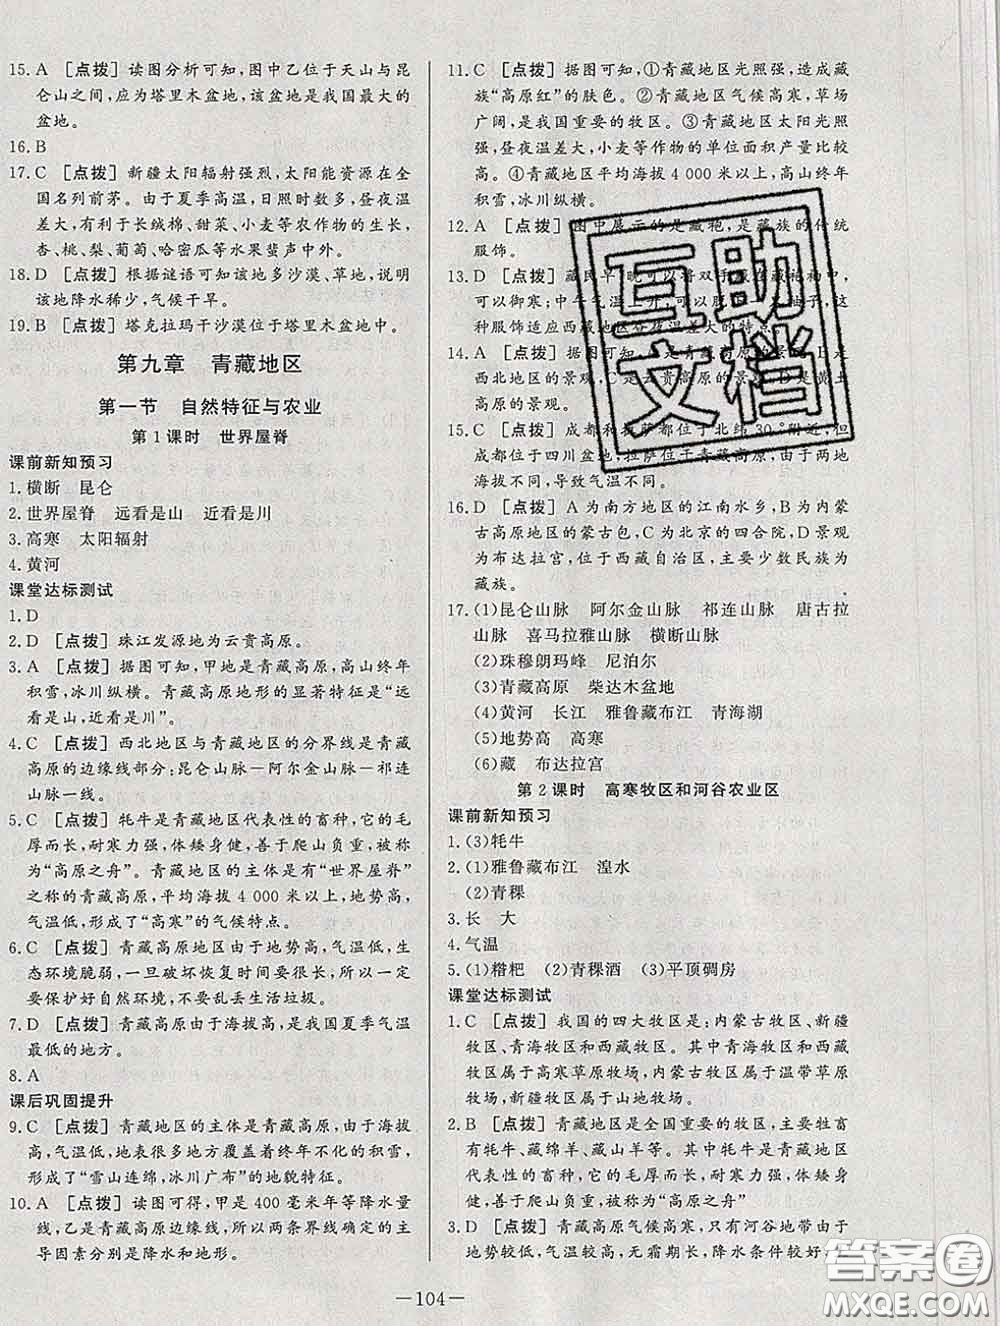 15. A [点拨] 读图分析可知，图中乙位于天山与昆
仑山之间，应为塔里木盆地，该盆地是我国最大的
盆地。
16. B
17. C [点拨] 新疆太阳辐射强烈，太阳能资源在全
国名列前茅。由于夏季高温，日照时数多，昼夜温
差大，有利于长绒棉、甜菜、小麦等农作物的生长，
杏、桃、梨、葡萄、哈密瓜等水果蜚声中外。
18. D [点拨] 根据谜语可知该地多沙漠、草地，说明
该地降水稀少，气候干旱。
19. B [点拨] 塔克拉玛干沙漠位于塔里木盆地中。
第九章 青藏地区
第一节 自然特征与农业
第1课时 世界屋脊
课前新知预习
1. 横断 昆仑
2. 世界屋脊 远看是山 近看是川
3. 高寒 太阳辐射
4. 黄河
课堂达标测试
1. D
2. D [点拨] 珠江发源地为云贵高原。
3. A [点拨] 据图可知，甲地是青藏高原，高山终年
积雪，冰川纵横。青藏高原地形的显著特征是“远
看是山，近看是川”。
4. C [点拨] 西北地区与青藏地区的分界线是青藏
高原的边缘线部分：昆仑山脉—阿尔金山脉—祁连
山脉一线。
5. C [点拨] 牦牛是青藏地区代表性的畜种，它的毛
厚而长，耐寒力强，体矮身健，善于爬山负重，被称
为“高原之舟”。青藏地区的主体是有“世界屋脊”
之称的青藏高原，平均海拔 4 000 米以上，地势高，
气温低，形成了“高寒”的气候特点。
6. C [点拨] 青藏高原地区由于地势高，气温低，生
态环境脆弱，一旦破坏恢复时间要很长，所以一定
要保护好自然环境，不要乱丢生活垃圾。
7. D [点拨] 青藏高原由于海拔高，是我国夏季气温
最低的地方。
8. A
课后巩固提升
9. C [点拨] 青藏地区的主体是青藏高原，由于海拔
高，气温低，地表很多地方覆盖着终年不化的积雪，
形成了“雪山连绵，冰川广布”的地貌特征。
10. A [点拨] 读图可得，甲是 400 毫米年等降水量
线，乙是青藏高原边缘线，所以两条界线确定的主
导因素分别是降水和地形。
11. C [点拨] 据图可知，①青藏地区光照强，造成藏
族“高原红”的肤色。②青藏地区气候高寒，草场
广阔，是我国重要的牧区。③青藏地区太阳光照
强，昼夜温差大，小麦等作物的单位面积产量比较
高。④青藏地区平均海拔 4 000 米以上，高山终年
积雪，冰川纵横。
12. A [点拨] 图中展示的是藏袍，是藏族的传统
服饰。
13. D [点拨] 藏民早晚可以将双手藏在藏袍袖中，
可以御寒；中午气温上升，可以
种服饰适应西藏地区昼夜温差大的特点。
14. A [点拨] A是青藏高原的景观，B是
西北地区的景观，C是云贵高原的景观，D是黄土
高原的景观。
15. C [点拨] 成都和拉萨都位于北纬 30°附近，但
成都位于四川盆地，拉萨位于青藏高原，由于两地
海拔不同，导致气温不同。
16. D [点拨] A 为南方地区的江南水乡，B 为内蒙
古高原地区的蒙古包，C 为北京的四合院，D 景观
为布达拉宫，位于西藏自治区，主要少数民族为
藏族。
17. (1)昆仑山脉 阿尔金山脉 祁连山脉 唐古拉
山脉 喜马拉雅山脉 横断山脉
(2)珠穆朗玛峰 尼泊尔
(3)青藏高原 柴达木盆地
(4)黄河 长江 雅鲁藏布江 青海湖
(5)地势高 高寒
(6)藏 布达拉宫
第2课时 高寒牧区和河谷农业区
课前新知预习
1. (3)牦牛
2. (1)雅鲁藏布江 湟水
(2)青稞
3. 长 大
4. 气温
5. (1)糌粑 (2)青稞酒 (3)平顶碉房
课堂达标测试
1. C [点拨] 我国的四大牧区是：内蒙古牧区、新疆
牧区、青海牧区和西藏牧区。其中青海牧区和西藏
牧区属于高寒草原牧场，内蒙古牧区属于温带草原
牧场，新疆牧区属于山地牧场。
2. B [点拨] 青藏地区是全国重要的牧区，主要牲畜
有牦牛、藏绵羊、藏山羊等。其中牦牛是青藏地区
代表性的畜种，它的毛厚而长，耐寒力强，体矮身
健，善于爬山负重，被称为“高原之舟”
3. D [点拨] 青藏高原气候高寒，只有河谷地带由于
地势较低，气温较高，无霜期长，降水条件较好，
—104—
互助
文档
答案圈
MXQE.COM